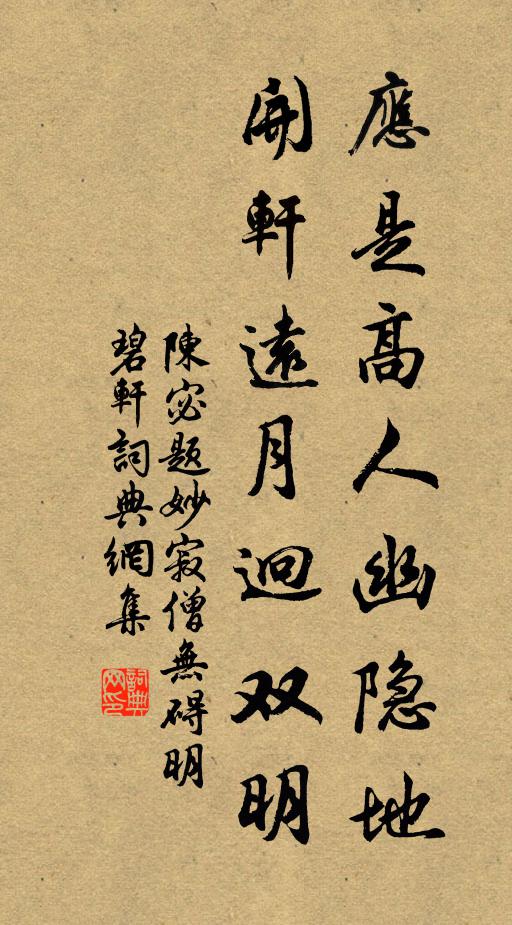 應是高人幽隐地
開軒遠月迥双明
陳宓題妙寂僧無碍明
碧軒詞典網集
詞典网印